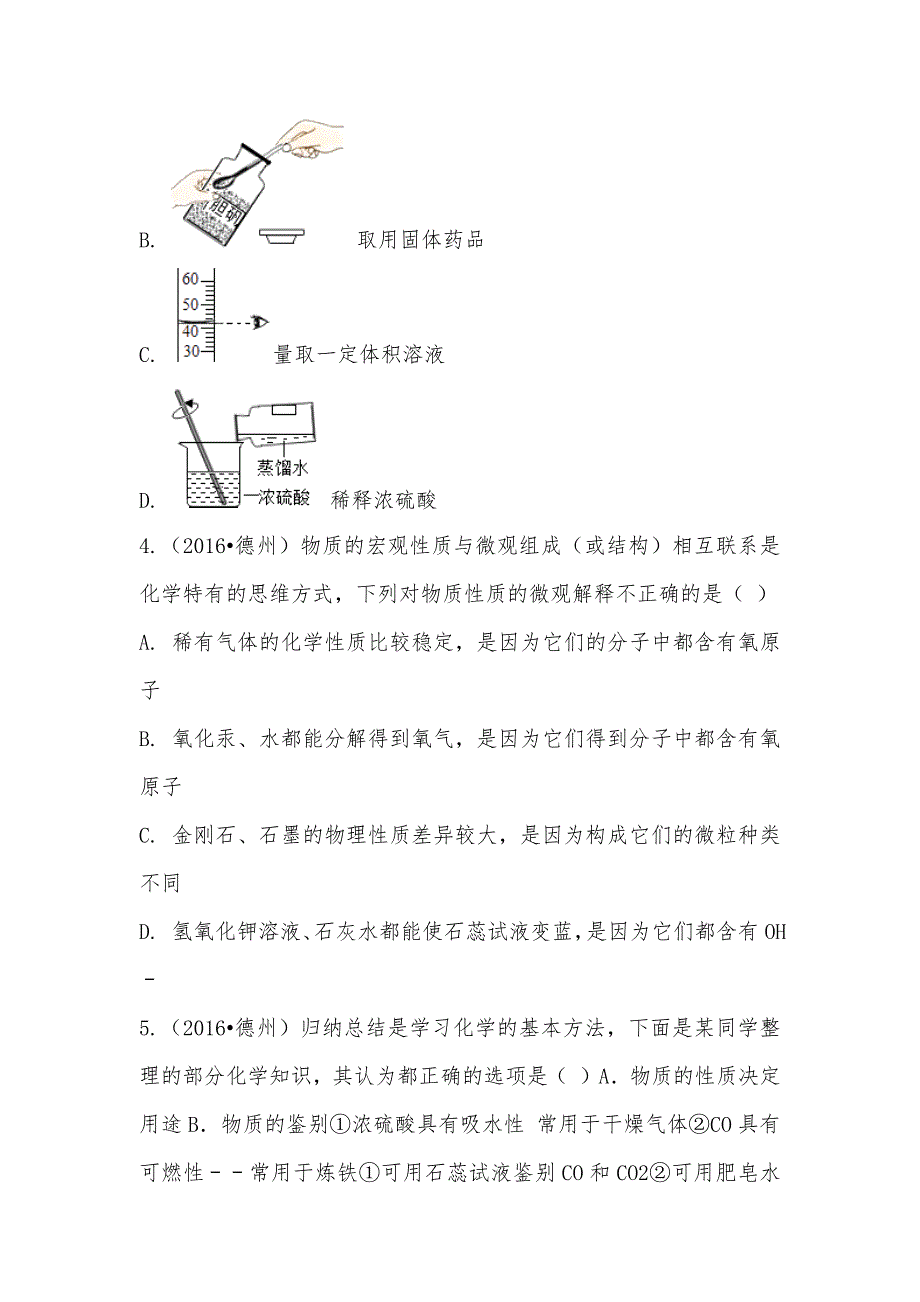 胆矾
B. 取用固体药品
60
50
40
30
C. 量取一定体积溶液
蒸馏水
浓硫酸
D. 稀释浓硫酸
4.（2016•德州）物质的宏观性质与微观组成（或结构）相互联系是
化学特有的思维方式，下列对物质性质的微观解释不正确的是（ ）
A. 稀有气体的化学性质比较稳定，是因为它们的分子中都含有氧原
子
B. 氧化汞、水都能分解得到氧气，是因为它们得到分子中都含有氧
原子
C. 金刚石、石墨的物理性质差异较大，是因为构成它们的微粒种类
不同
D. 氢氧化钾溶液、石灰水都能使石蕊试液变蓝，是因为它们都含有OH
﹣
5.（2016•德州）归纳总结是学习化学的基本方法，下面是某同学整
理的部分化学知识，其认为都正确的选项是（ ）A．物质的性质决定
用途B．物质的鉴别①浓硫酸具有吸水性 常用于干燥气体②CO具有
可燃性﹣﹣常用于炼铁①可用石蕊试液鉴别CO和CO2②可用肥皂水